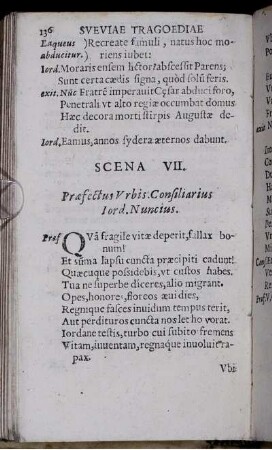 136 SVEVIAE TRAGOEDIAE
Laqueus )Recreate famuli, natus hoc mo-
abducitur.) riens iubet:
Iord. Moraris ensem lictor? abscessit Parens;
Sunt certa cædis signa, quòd solũ feris.
exit. Nũc Fratrẽ imperauit Cęsar abduci foro,
Penetrali vt alto regiæ occumbat domus
Hæc decora morti stirpis Augustæ de-
dit.
Iord. Eamus, annos sydera æternos dabunt.
SCENA VII.
Præfectus Vrbis. Consiliarius
Iord. Nuncius.
Pref QVã fragile vitæ deperit, fallax bo-
num!
Et sũma lapsu cuncta præcipiti cadunt!
Quæcunque possidebis, vt custos habes.
Tua ne superbe diceres, alio migrant.
Opes, honores, floreos æui dies,
Regnique fasces inuidum tempus terit,
Aut perdituros cuncta nos letho vorat.
Iordane testis, turbo cui subito fremens
Vitam, iuuentam, regnaque inuoluit ra-
pax.
Vbi